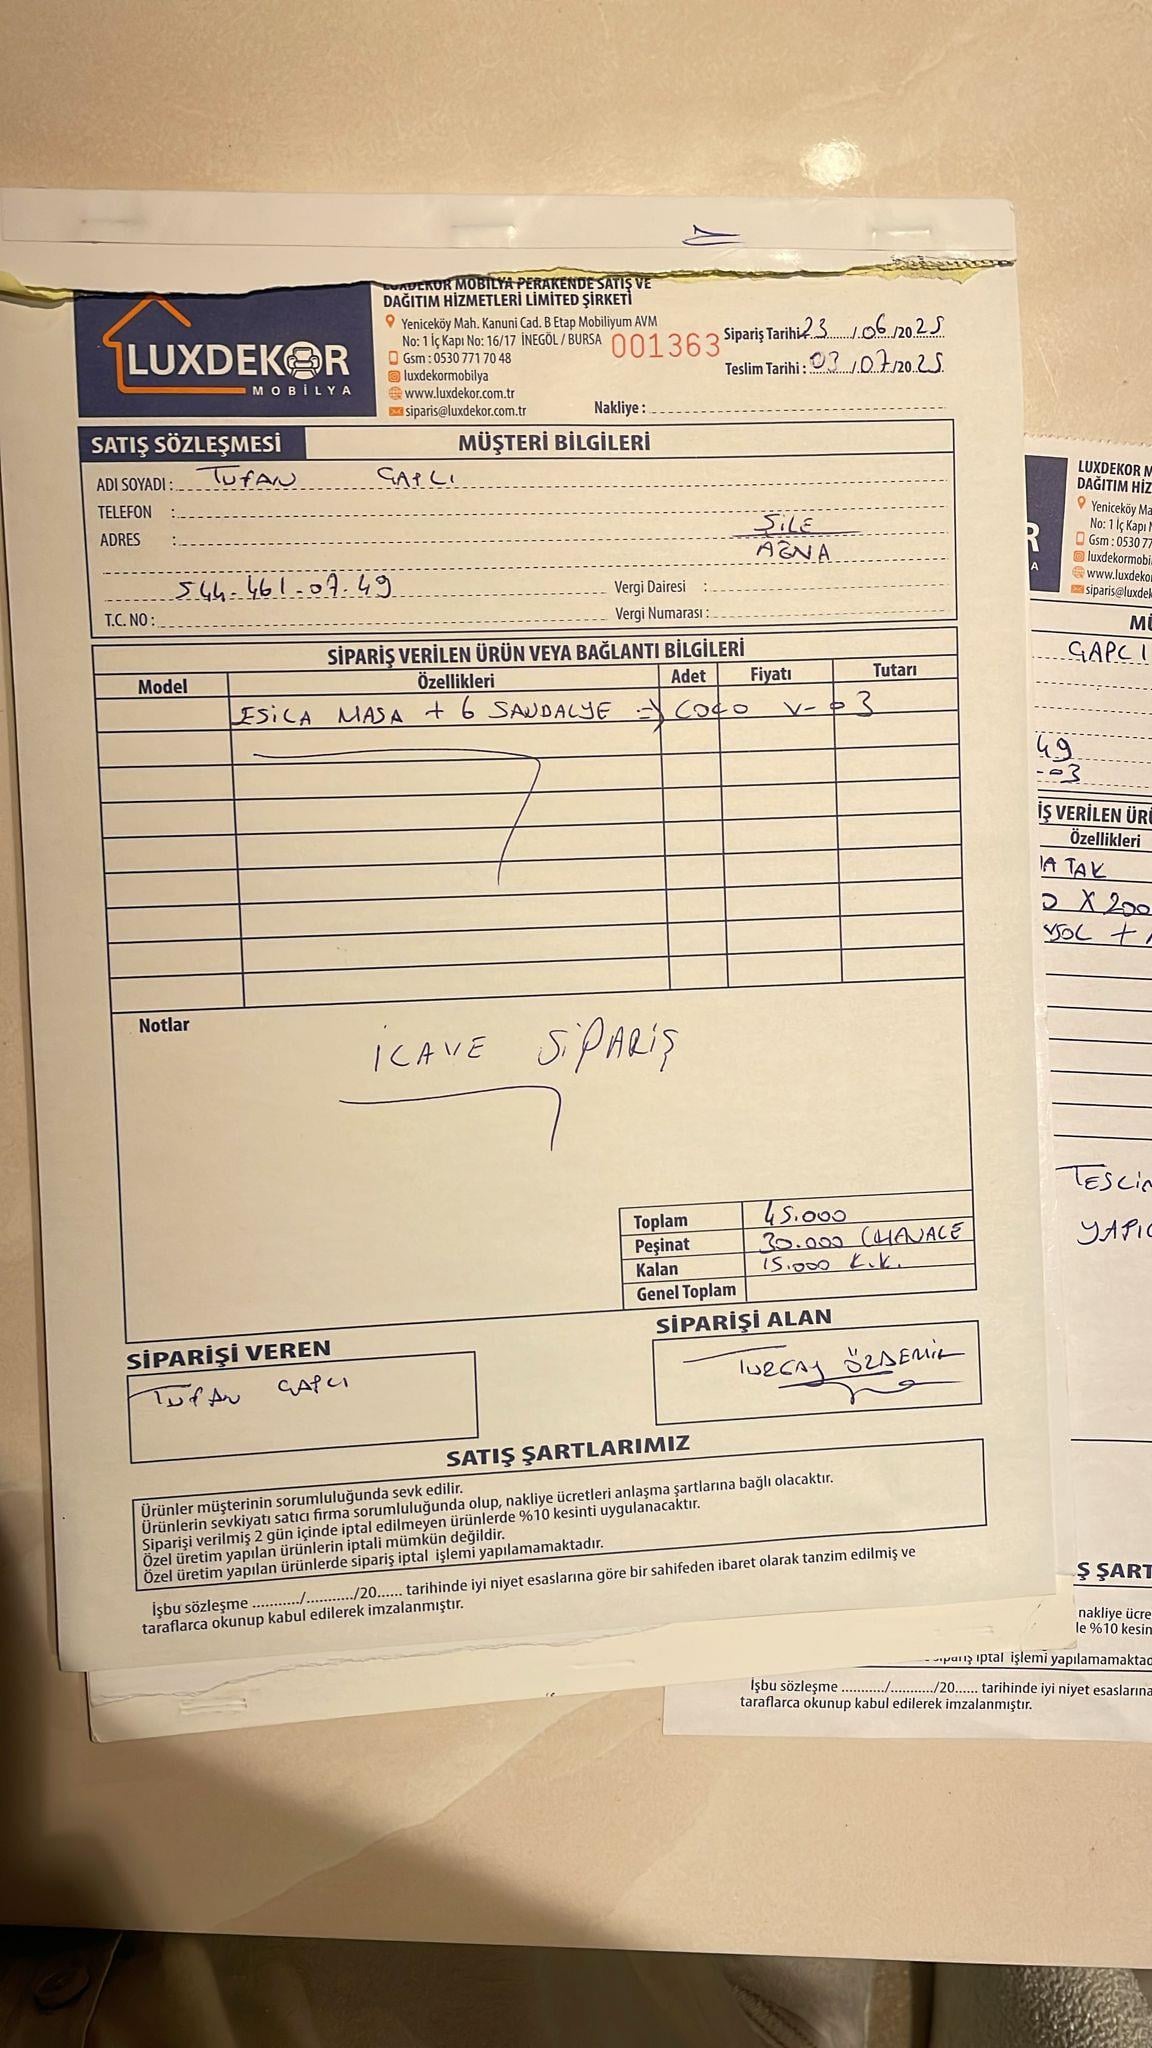 LUXDEKOR MOBİLYA PERAKENDE SATIŞ VE
DAĞITIM HİZMETLERİ LİMİTED ŞİRKETİ
Yeniceköy Mah. Kanuni Cad. B Etap Mobiliyum AVM
No: 1 İç Kapı No: 16/17 İNEGÖL / BURSA
001363
Gsm : 0530 771 70 48
luxdekormobilya
www.luxdekor.com.tr
siparis@luxdekor.com.tr
LUXDEKOR
MOBİLYA
Sipariş Tarihi 23 / 06 /2025
Teslim Tarihi : 03 / 07 /2025
Nakliye :
SATIŞ SÖZLEŞMESİ MÜŞTERİ BİLGİLERİ
ADI SOYADI : TUFAN GAPLI
TELEFON :
ADRES : ŞİLE
AĞVA
544-461-07-49 Vergi Dairesi :
T.C. NO : Vergi Numarası :
SİPARİŞ VERİLEN ÜRÜN VEYA BAĞLANTI BİLGİLERİ
Model Özellikleri Adet Fiyatı Tutarı
MASA + 6 SANDALYE => COCO V-03
Notlar
İLAVE SİPARİŞ
Toplam 45.000
Peşinat 30.000 (HAVALE
Kalan 15.000 K.K.
Genel Toplam
SİPARİŞİ VEREN
TUFAN GAPLI
SİPARİŞİ ALAN
ÖZDEMİR
SATIŞ ŞARTLARIMIZ
Ürünler müşterinin sorumluluğunda sevk edilir.
Ürünlerin sevkiyatı satıcı firma sorumluluğunda olup, nakliye ücretleri anlaşma şartlarına bağlı olacaktır.
Siparişi verilmiş 2 gün içinde iptal edilmeyen ürünlerde %10 kesinti uygulanacaktır.
Özel üretim yapılan ürünlerin iptali mümkün değildir.
Özel üretim yapılan ürünlerde sipariş iptal işlemi yapılamamaktadır.
İşbu sözleşme ........../........../20...... tarihinde iyi niyet esaslarına göre bir sahifeden ibaret olarak tanzim edilmiş ve
taraflarca okunup kabul edilerek imzalanmıştır.
LUXDEKOR M
DAĞITIM HİZ
Yeniceköy Ma
No: 1 İç Kapı N
Gsm : 0530 77
luxdekormobi
www.luxdeko
siparis@luxdek
R
A
MÜ
GAPLI
49
-03
İŞ VERİLEN ÜRÜ
Özellikleri
TAK
X 200
TESLİM
Ş ŞART
nakliye ücre
le %10 kesin
iptal işlemi yapılamamaktad
İşbu sözleşme ........../........../20...... tarihinde iyi niyet esaslarına
taraflarca okunup kabul edilerek imzalanmıştır.